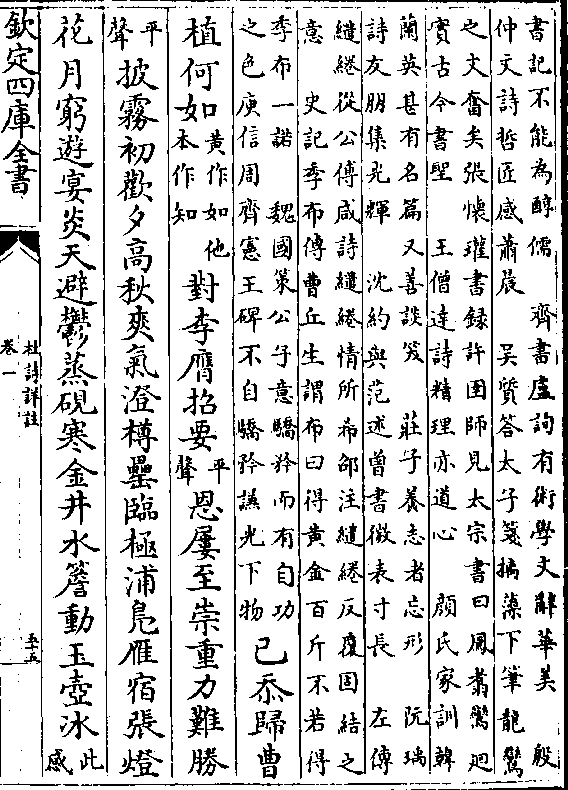 書記不能為醇儒　齊書盧詢有術學文辭華美　殷
仲文詩哲匠感蕭晨　吳質答太子箋摛藻下筆龍鸞
之文奮矣張懷瓘書録許圉師見太宗書曰鳳翥鸞迴
實古今書聖　王僧達詩精理亦道心　顔氏家訓韓
蘭英甚有名篇又善談笑　莊子養志者忘形　阮瑀
詩友朋集光輝　沈約與范述曾書微表寸長　左傳
繾綣從公傅咸詩繾綣情所希卲注繾綣反覆固結之
意　史記季布傳曹丘生謂布曰得黄金百斤不若得
季布一諾　魏國策公子意驕矜而有自功
之色庾信周齊憲王碑不自驕矜謙光下物
已忝歸曹
植何如黄作如他
本作知
對李膺招要平
聲恩屢至崇重力難勝
平
聲披霧初歡夕高秋爽氣澄樽罍臨極浦鳬雁宿張燈
花月窮遊宴炎天避鬱蒸硯寒金井水簷動玉壺冰此
感
欽定四庫全書
杜詩詳註
卷一
五十五